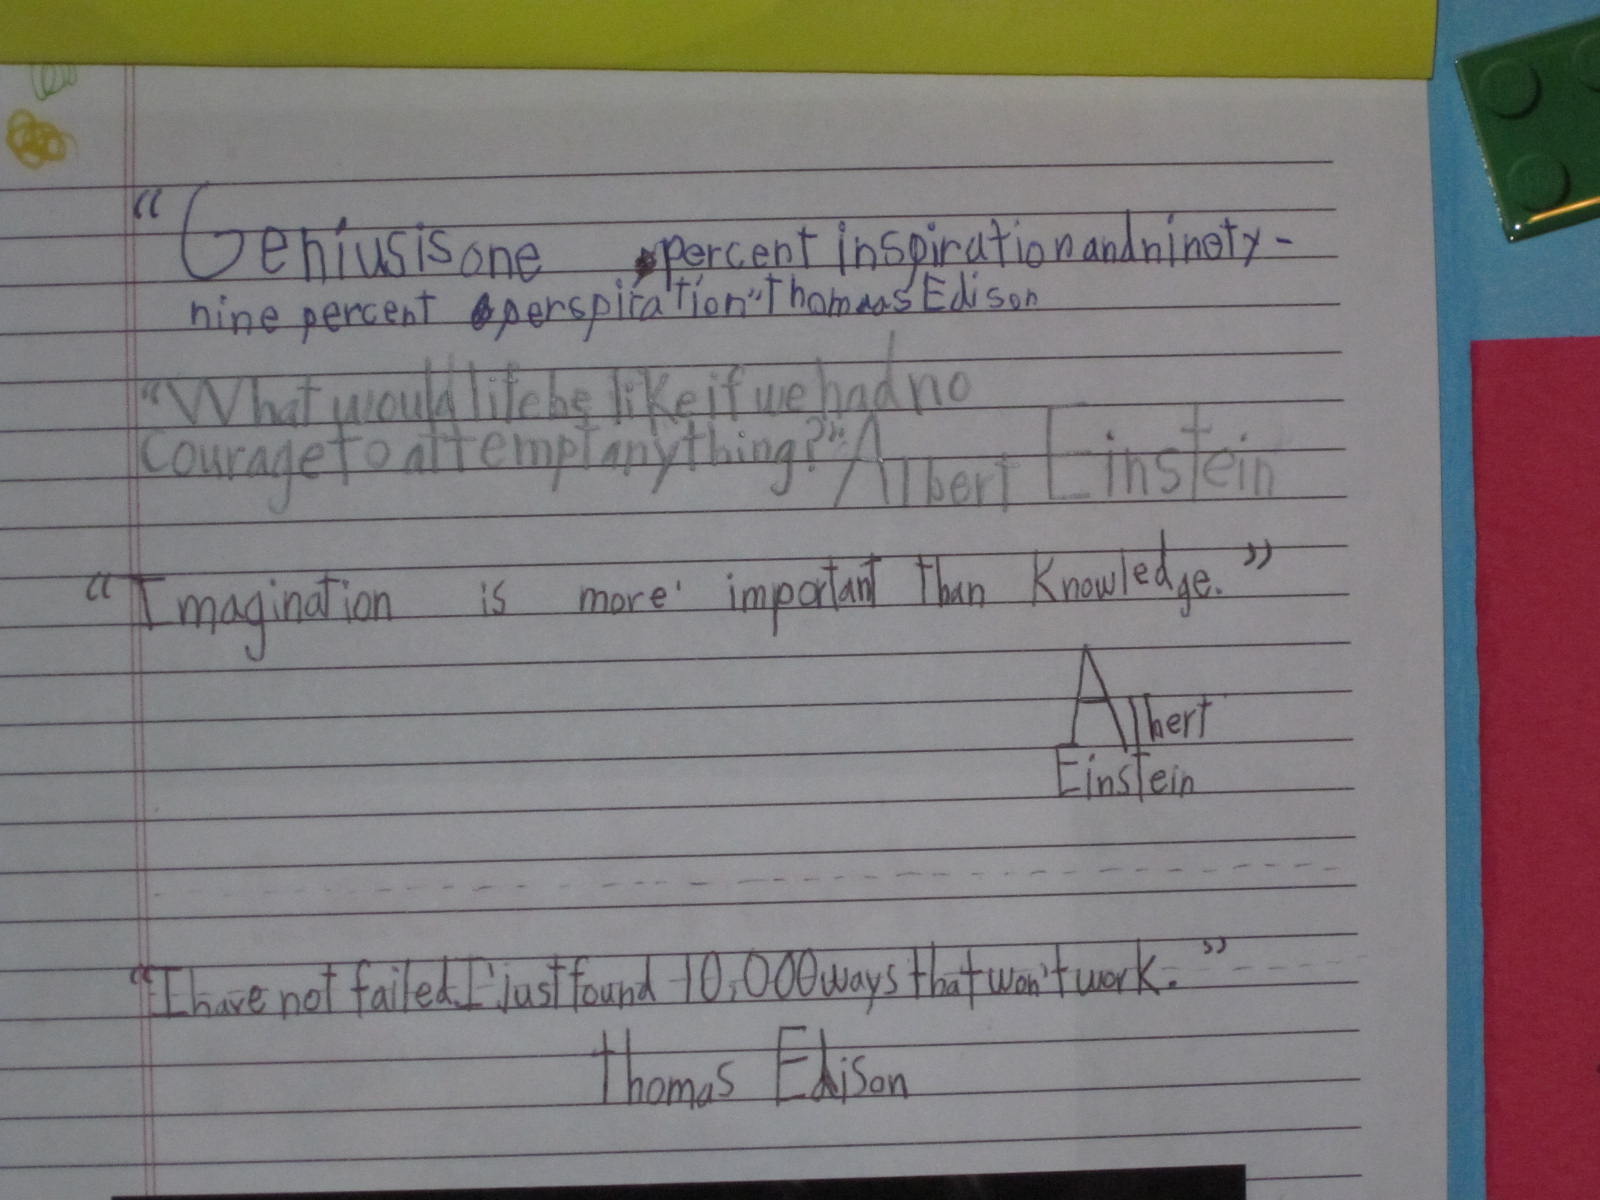 “Genius is one percent inspiration and ninety-
nine percent perspiration" Thomas Edison
“What would life be like if we had no
courage to attempt anything?" Albert Einstein
“Imagination is more important than Knowledge.”
Albert
Einstein
“I have not failed. I' just found 10,000 ways that won't work.”
Thomas Edison